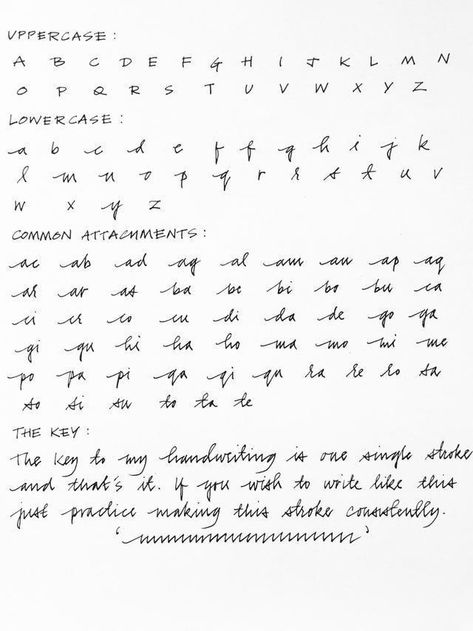 UPPERCASE :
A B C D E F G H I J K L M N
O P Q R S T U V W X Y Z
LOWERCASE :
a b c d e f f g h i j k
l m n o p q r r s s t u v
w x y z
COMMON ATTACHMENTS :
ac ab ad ag al am an ap aq
ar as ba be bi bo bu ca
ci co cu di da de go ga
gi gu hi ha ho ma mo mi me
po pa pi qa qi qu ra re ro sa
so si su to ta te
THE KEY :
The key to my handwriting is one single stroke
and that's it. If you wish to write like this
just practice making this stroke consistently.